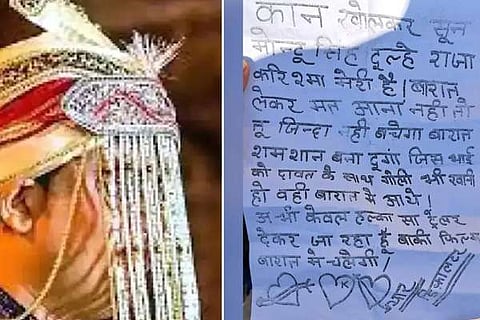 कान खोलकर सुन
मोन्टू सिंह दूल्हे राजा
करिश्मा मेरी है। बारात
लेकर मत आना नही तो
तू जिन्दा नही बचेगा बारात
शमशान बना दुगां जिस भाई
को दावत के साथ गोली भी खानी
हो वही बारात में आये।
अभी केवल हल्का सा ट्रेलर
देकर जा रहा हूँ बाकी फिल्म
बारात में चलेगी।
K